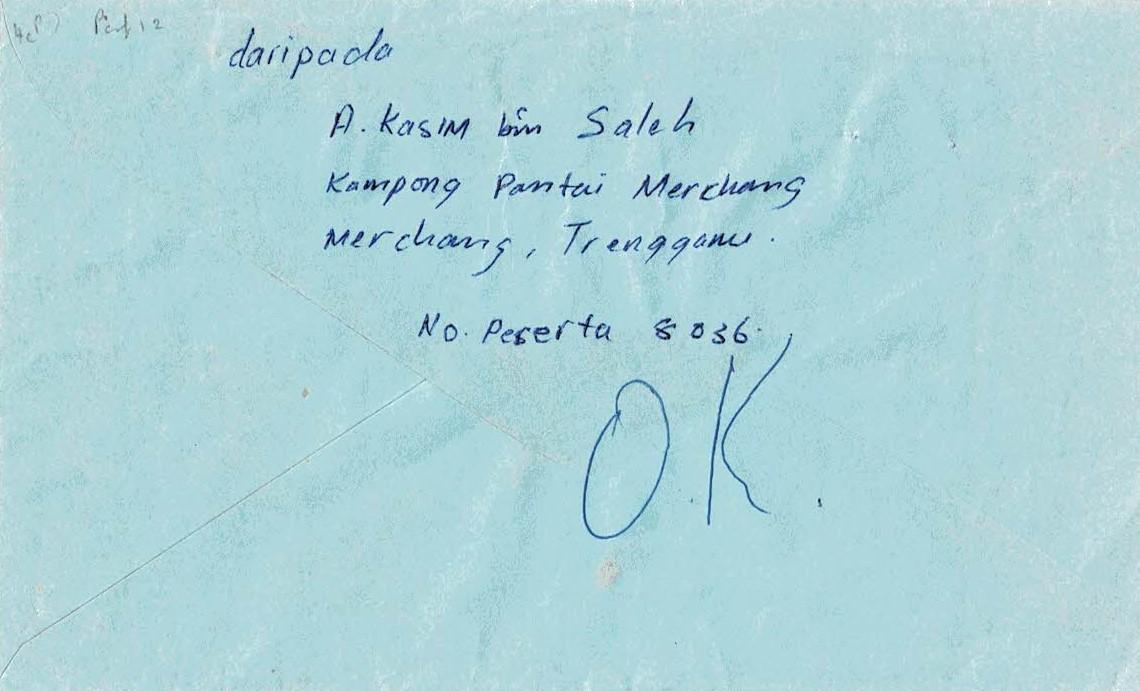 Perf 12
daripada
A. Kasim bin Saleh
Kampong Pantai Merchang
Merchang, Trengganu.
No. Peserta 8036.
O.K.